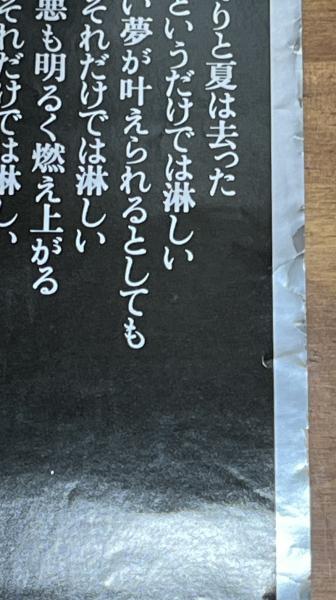 りと夏は去った
というだけでは淋しい
い夢が叶えられるとしても
それだけでは淋しい
悪も明るく燃え上がる
それだけでは淋しい